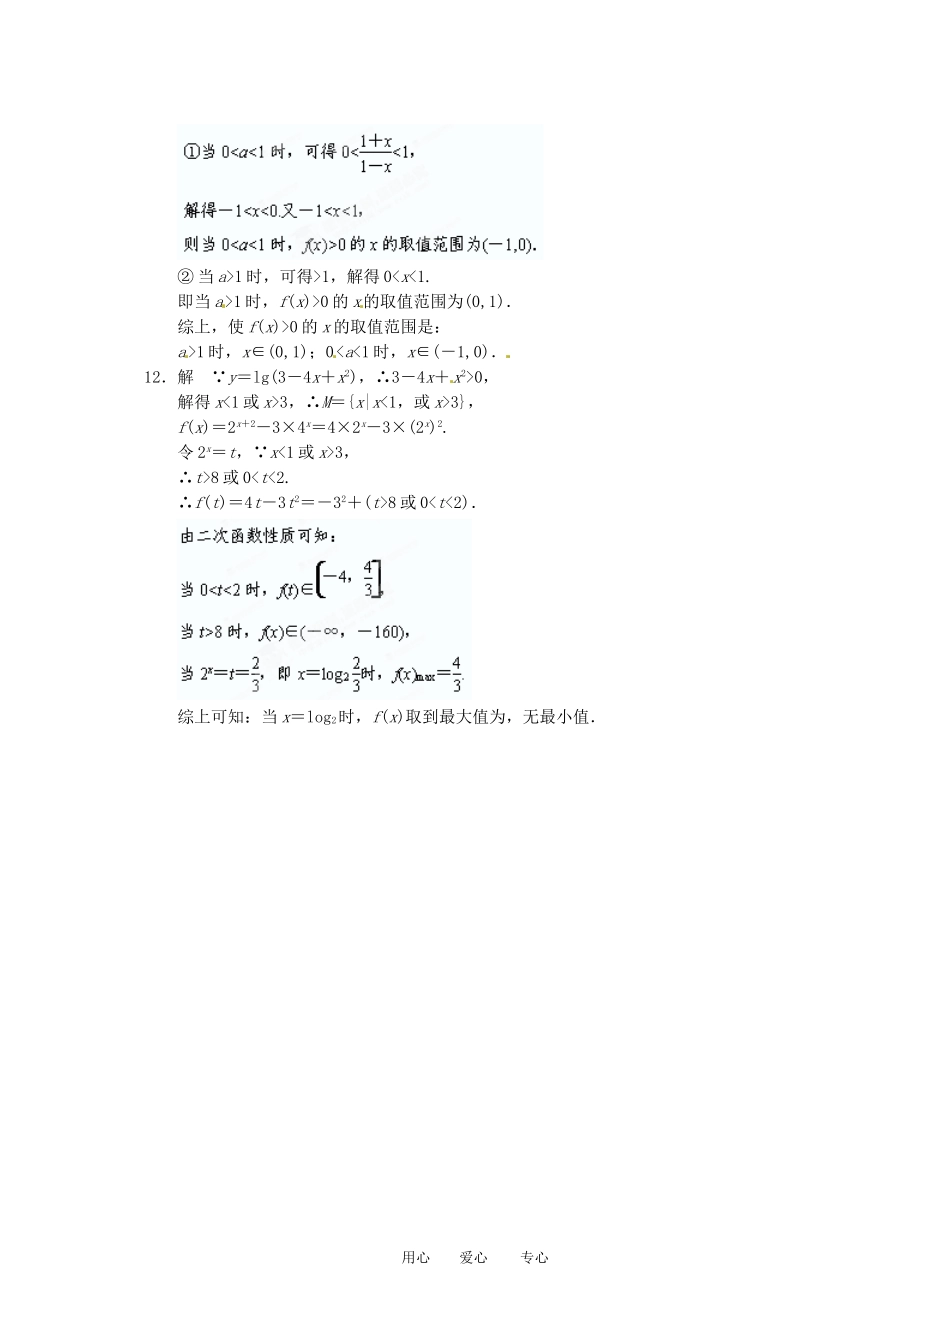 ①当 0<a<1 时，可得 0<\frac{1+x}{1-x}<1，
解得－1<x<0.又－1<x<1，
则当 0<a<1 时，f(x)>0 的 x 的取值范围为(－1,0)．
②当 a>1 时，可得>1，解得 0<x<1.
即当 a>1 时，f(x)>0 的 x 的取值范围为(0,1)．
综上，使 f(x)>0 的 x 的取值范围是：
a>1 时，x∈(0,1)；0<a<1 时，x∈(－1,0)．
12．解　∵y＝lg(3－4x＋x²)，∴3－4x＋x²>0，
解得 x<1 或 x>3，∴M＝{x|x<1，或 x>3}，
f(x)＝2ˣ⁺²－3×4ˣ＝4×2ˣ－3×(2ˣ)².
令 2ˣ＝t，∵x<1 或 x>3，
∴t>8 或 0<t<2.
∴f(t)＝4t－3t²＝－3²＋(t>8 或 0<t<2)．
由二次函数性质可知：
当 0<t<2 时，f(t)∈(－4，\frac{4}{3}]，
当 t>8 时，f(x)∈(－∞，－160)，
当 2ˣ＝t＝\frac{2}{3}，即 x＝log₂\frac{2}{3}时，f(x)max＝\frac{4}{3}.
综上可知：当 x＝log₂时，f(x)取到最大值为，无最小值．
用心　爱心　专心